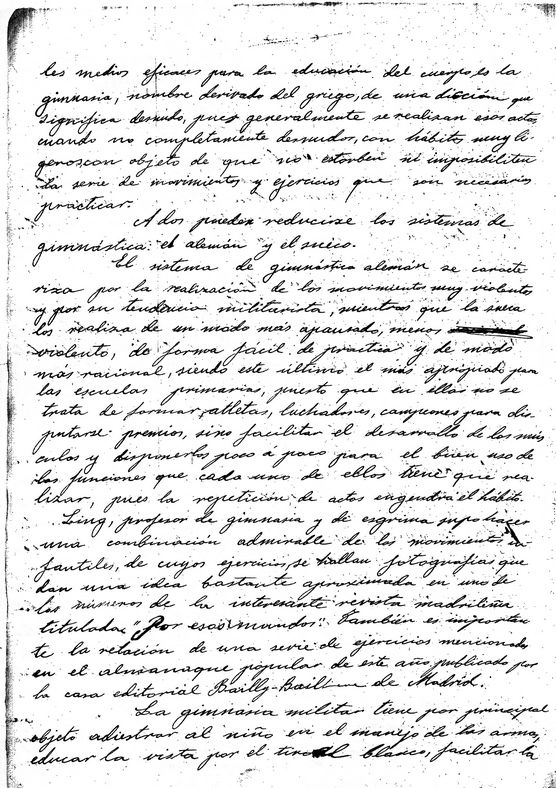 les medios eficaces para la educación del cuerpo, es la
gimnasia, nombre derivado del griego, de una dicción que
significa desnudo, pues generalmente se realizan esos actos
cuando no completamente desnudos, con hábitos muy li
geros con objeto de que no estorben ni imposibiliten
la serie de movimientos y ejercicios que son necesarios
practicar.
A dos pueden reducirse los sistemas de
gimnástica: el alemán y el sueco.
El sistema de gimnástica alemán se caracte
riza por la realización de los movimientos muy violentos
y por su tendencia militarista, mientras que la sueca
los realiza de un modo más apausado, menos
violento, de forma fácil de practica y de modo
más racional, siendo este último el más apropiado para
las escuelas primarias, puesto que en ellas no se
trata de formar atletas, luchadores, campeones para dis
putarse premios, sino facilitar el desarrollo de los mús
culos y disponerlos poco á poco para el buen uso de
las funciones que cada uno de ellos tiene que rea
lizar, pues la repetición de actos engendra el hábito.
Ling, profesor de gimnasia y de esgrima supo hacer
una combinación admirable de los movimientos in
fantiles, de cuyos ejercicios, se hallan fotografías que
dan una idea bastante aproximada en uno de
los números de la interesante revista madrileña
titulada "Por esos mundos". También es importan
te la relación de una serie de ejercicios mencionados
en el almanaque popular de este año, publicado por
la casa editorial Bailly-Bailliere de Madrid.
La gimnasia militar tiene por principal
objeto adiestrar al niño en el manejo de las armas,
educar la vista por el tiro al blanco, facilitar la